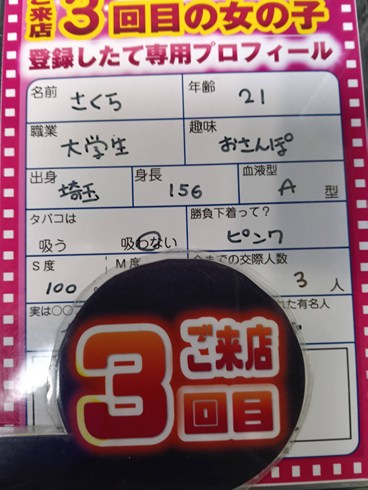 ご来店 3回目の女の子
登録したて専用プロフィール
名前 さくら 年齢 21
職業 大学生 趣味 おさんぽ
出身 埼玉 身長 156 血液型 A 型
タバコは 勝負下着って?
吸う 吸わない ピンク
S度 M度 までの交際人数
100 3 人
実は○○ れた有名人
3 ご来店
回目